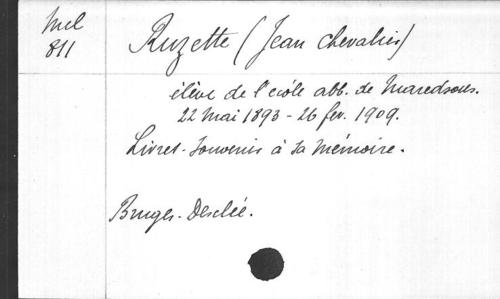 Mel
811
Ruzette (Jean chevalier)
élève de l'école abb. de Maredsous.
22 mai 1893 - 26 fev. 1909.
Livret-Souvenir à sa mémoire.
Bruges-Desclée.